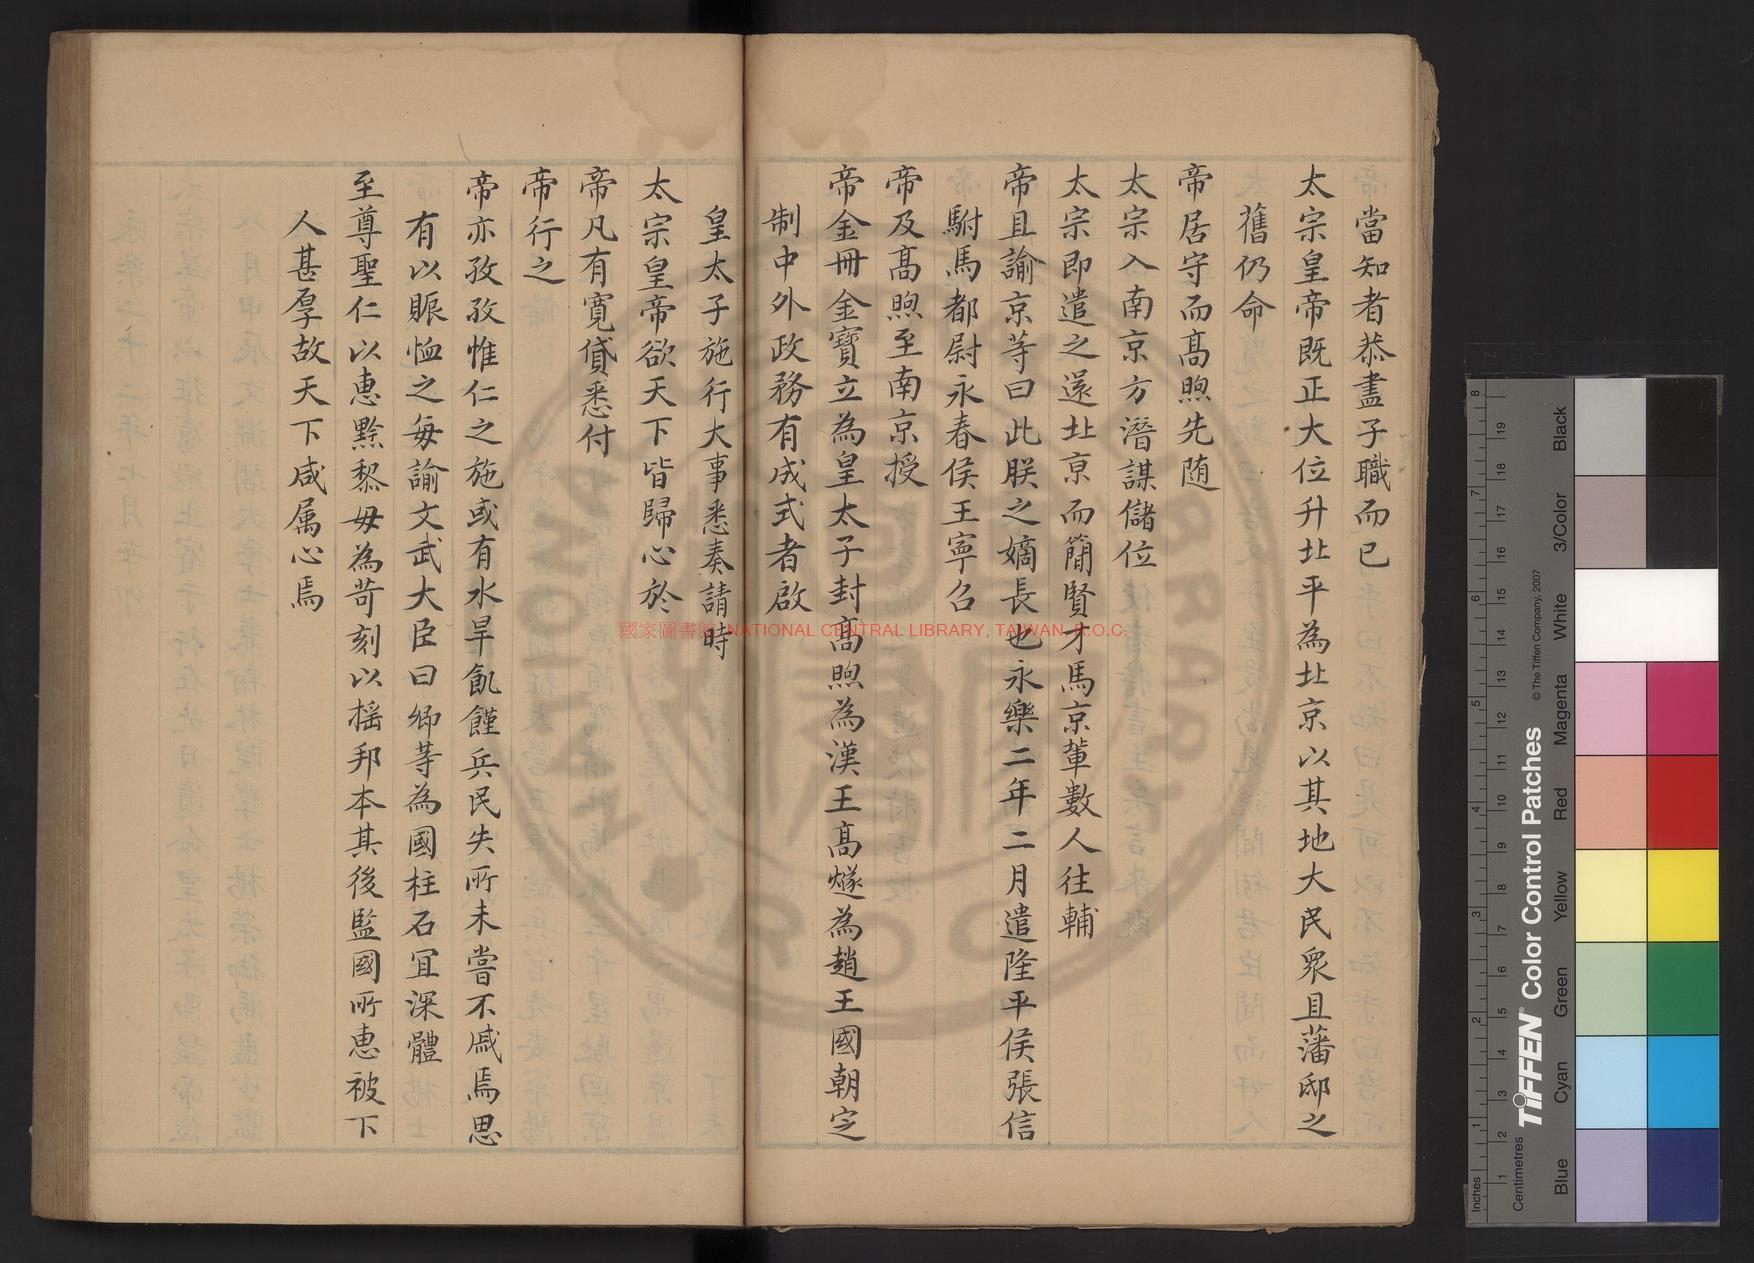 當知者恭盡子職而已
太宗皇帝既正大位升北平為北京以其地大民衆且藩邸之
舊仍命
帝居守而高煦先随
太宗入南京方潛謀儲位
太宗即遣之還北京而簡賢才馬京軰數人往輔
帝且諭京等曰此朕之嫡長也永樂二年二月遣隆平侯張信
駙馬都尉永春侯王寧召
帝及高煦至南京授
帝金冊金寶立為皇太子封高煦為漢王高燧為趙王國朝定
制中外政務有成式者啟
皇太子施行大事悉奏請時
太宗皇帝欲天下皆歸心於
帝凡有寬貸悉付
帝行之
帝亦孜孜惟仁之施或有水旱飢饉兵民失所未嘗不戚焉思
有以賑恤之每諭文武大臣曰卿等為國柱石冝深體
至尊聖仁以惠黔黎毋為苛刻以揺邦本其後監國所惠被下
人甚厚故天下咸属心焉
國家圖書館 NATIONAL CENTRAL LIBRARY, TAIWAN, R.O.C.
Inches
Centimetres
TIFFEN Color Control Patches
© The Tiffen Company, 2007
Blue
Cyan
Green
Yellow
Red
Magenta
White
3/Color
Black